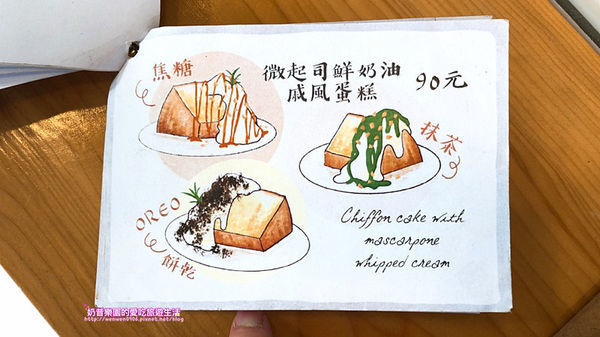 微起司鮮奶油
戚風蛋糕
90元
焦糖
抹茶
OREO
餅乾
Chiffon cake with
mascarpone
whipped cream
奶昔樂園的愛吃旅遊生活
http://wenwen0906.pixnet.net/blog